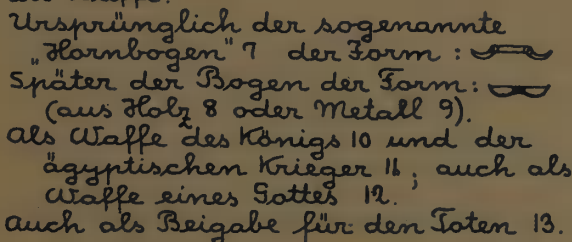 Ursprünglich der sogenannte
"Hornbogen" 7 der Form:
Später der Bogen der Form:
(aus Holz 8 oder Metall 9).
Als Waffe des Königs 10 und der
ägyptischen Krieger 11; auch als
Waffe eines Gottes 12.
Auch als Beigabe für den Toten 13.